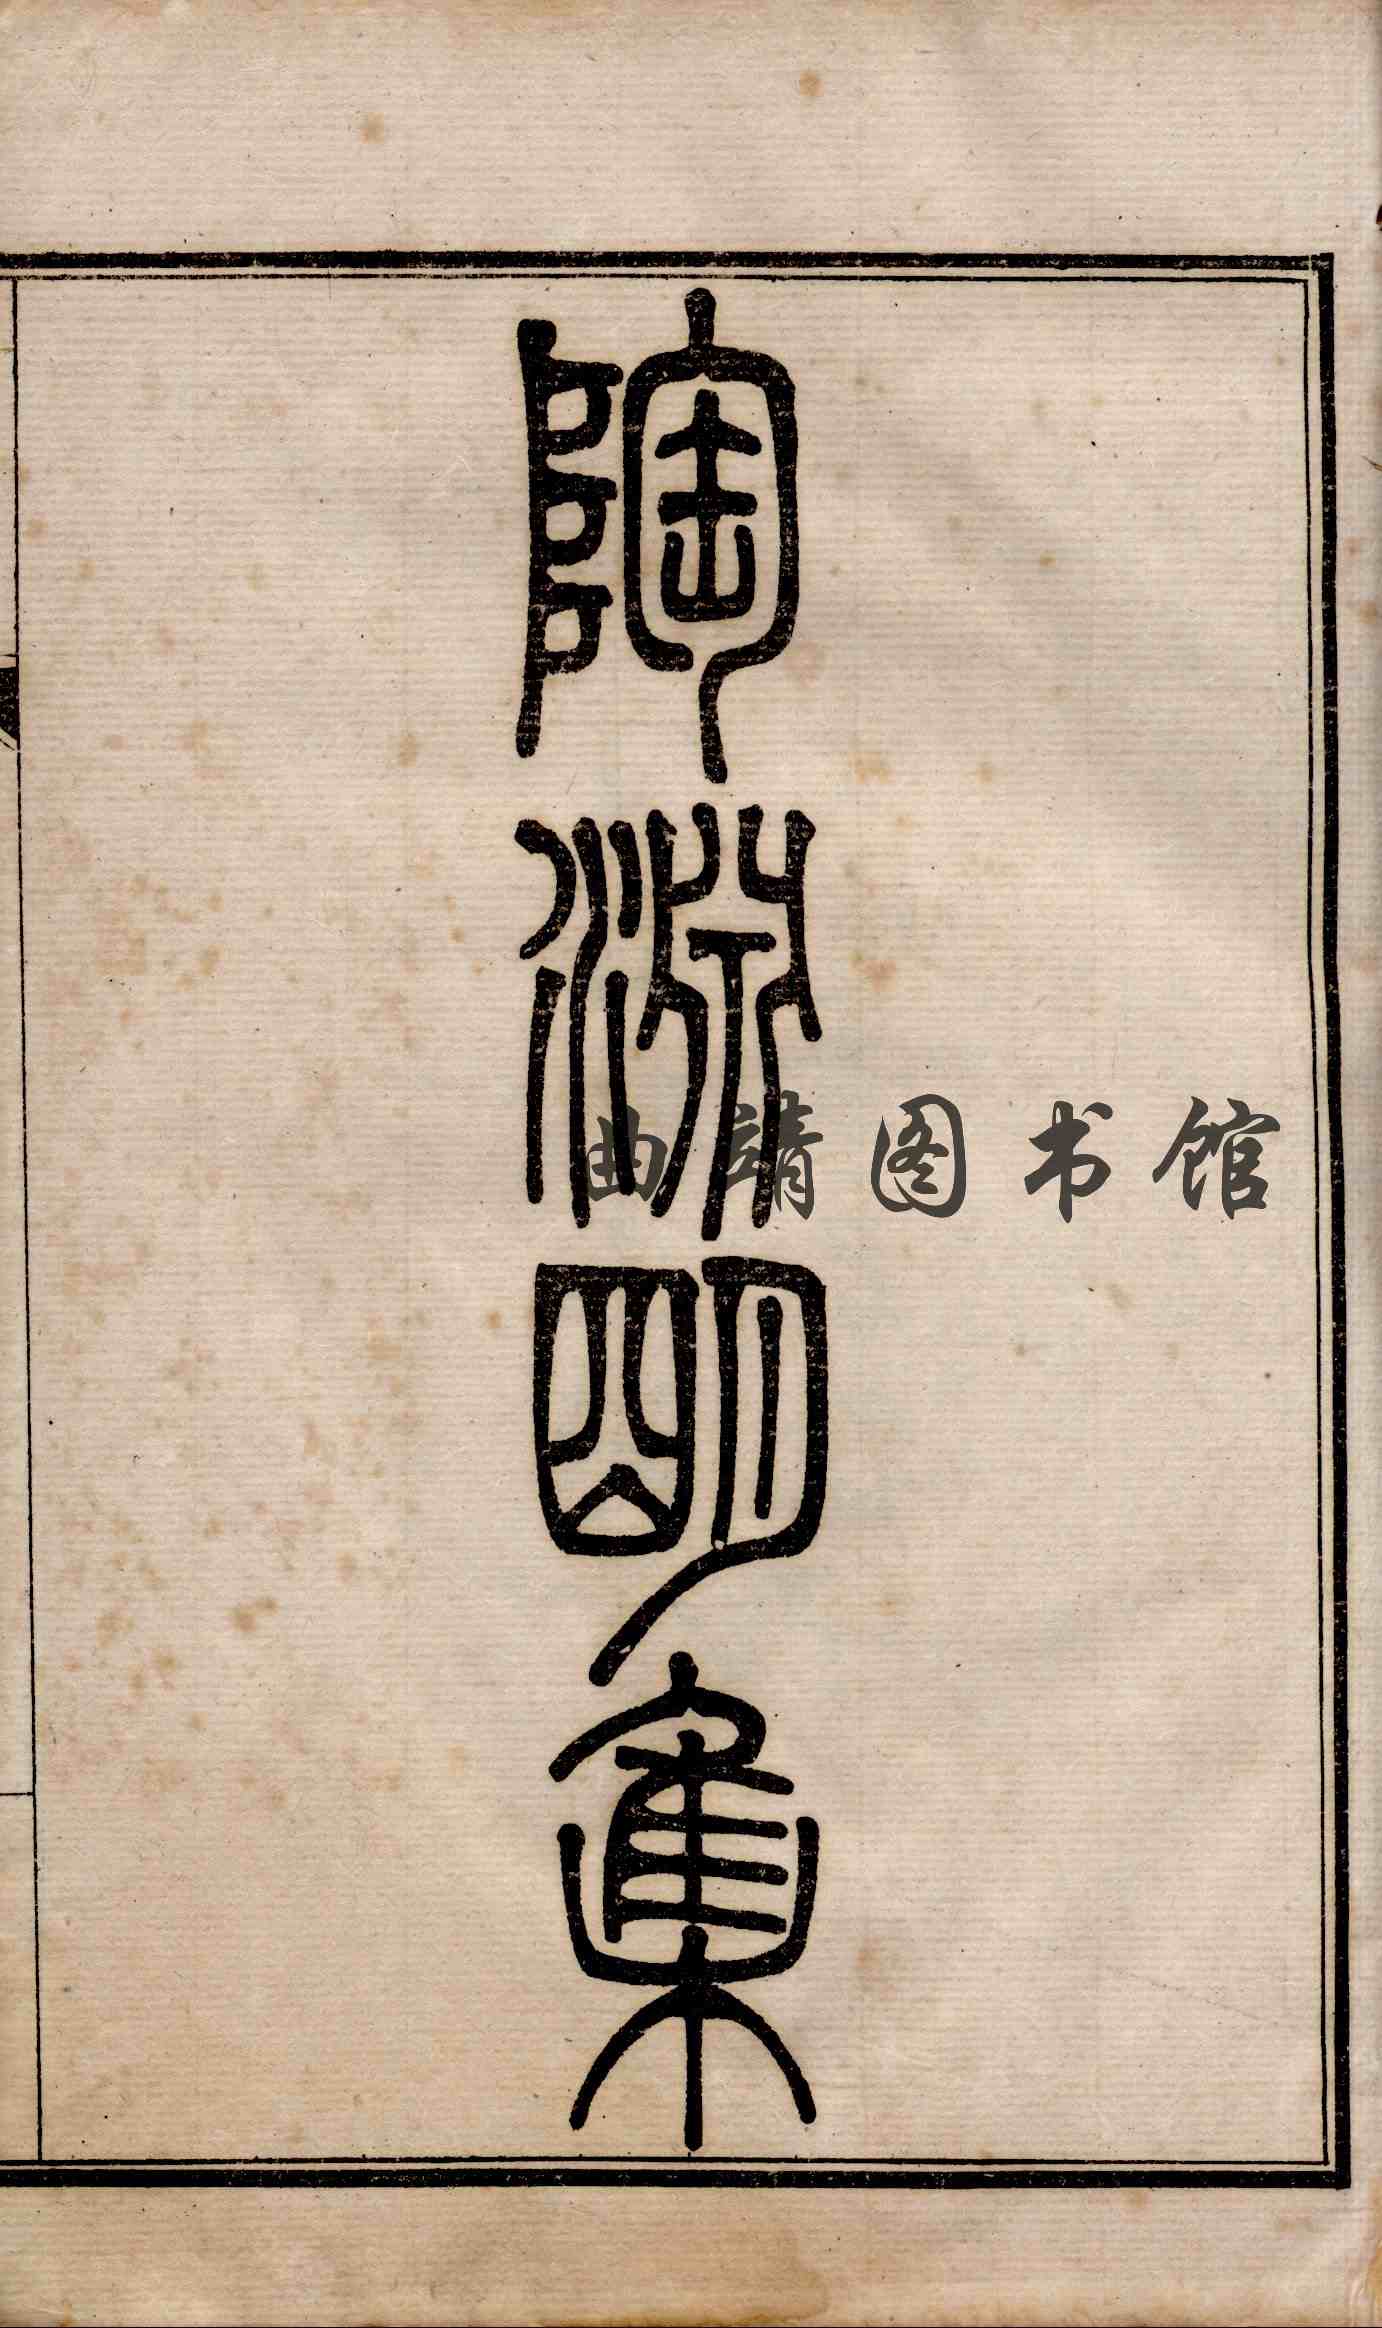 陶淵明集
曲靖图书馆